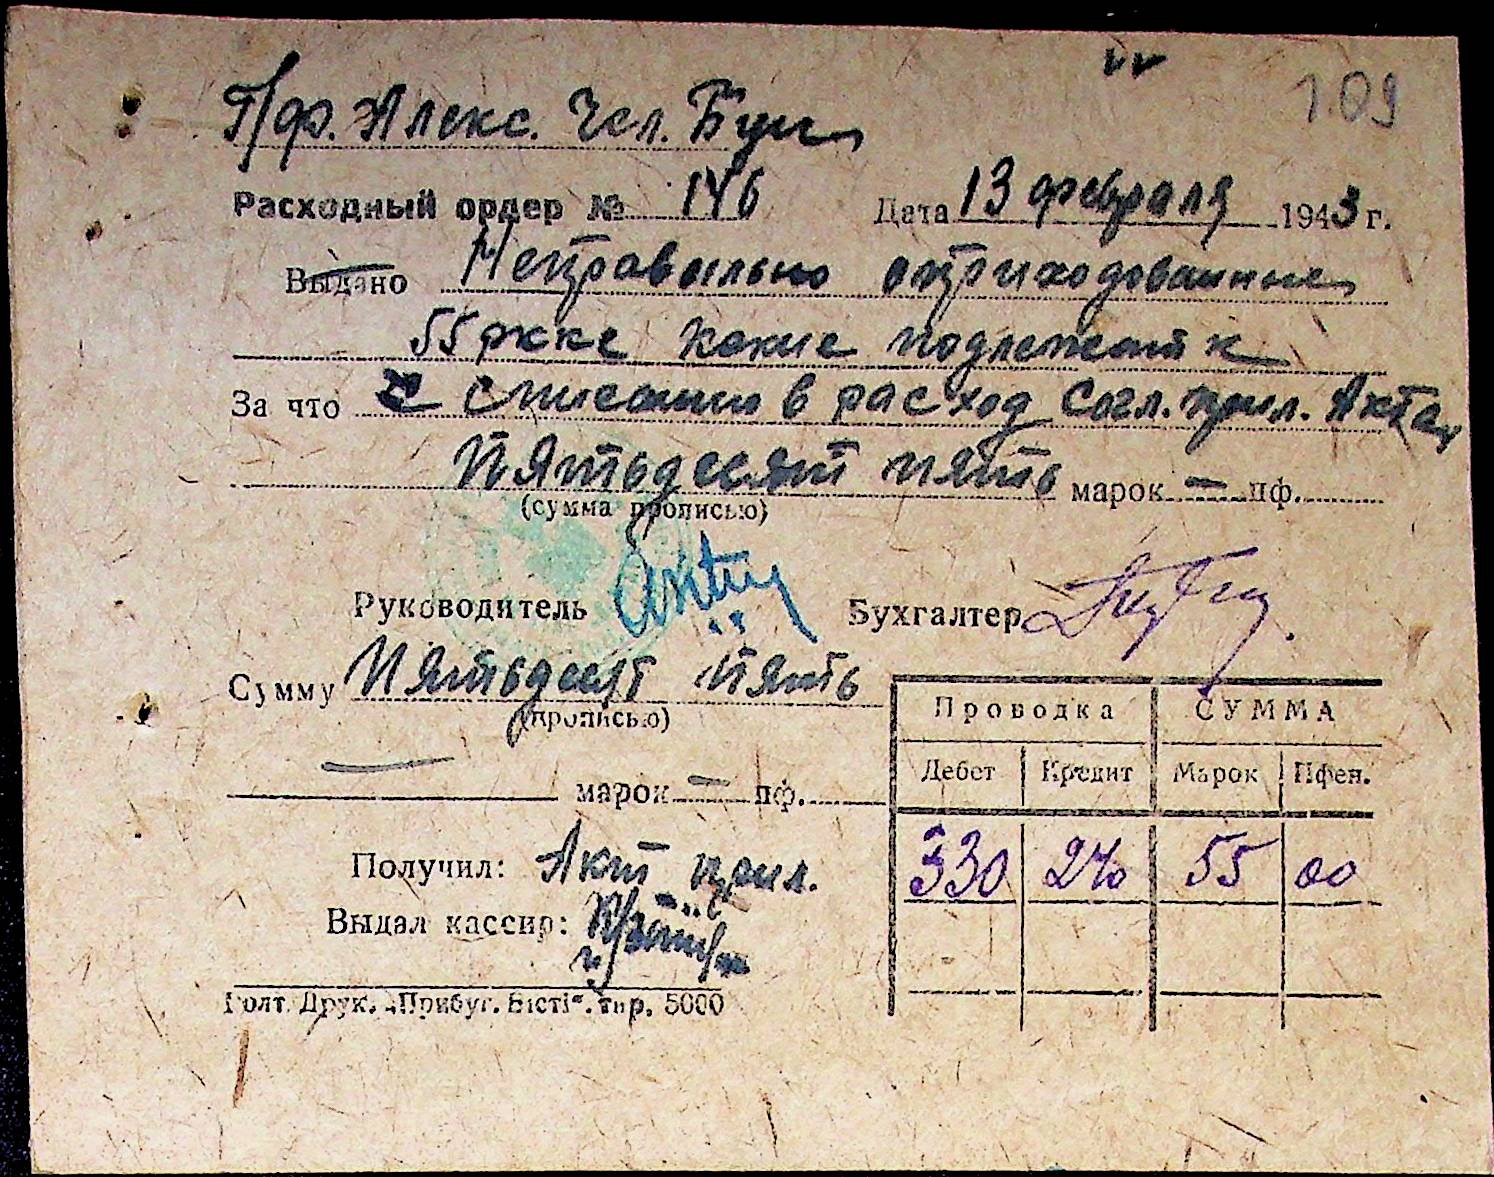 109
П/ф. Алекс.
Расходный ордер № 146 Дата 13 февраля 1943 г.
Выдано Неправильно оприходованные
55 ркке какие подлежат к
За что списанию в расход согл. прил. Акта
Пятьдесят пять марок — пф.
(сумма прописью)
Руководитель Бухгалтер
Сумму Пятьдесят пять
(прописью)
— марок — пф.
Проводка СУММА
Дебет Кредит Марок Пфен.
330 240 55 00
Получил: Акт прил.
Выдал кассир:
Голт. Друк. „Прибуг. Вісті“. тир. 5000